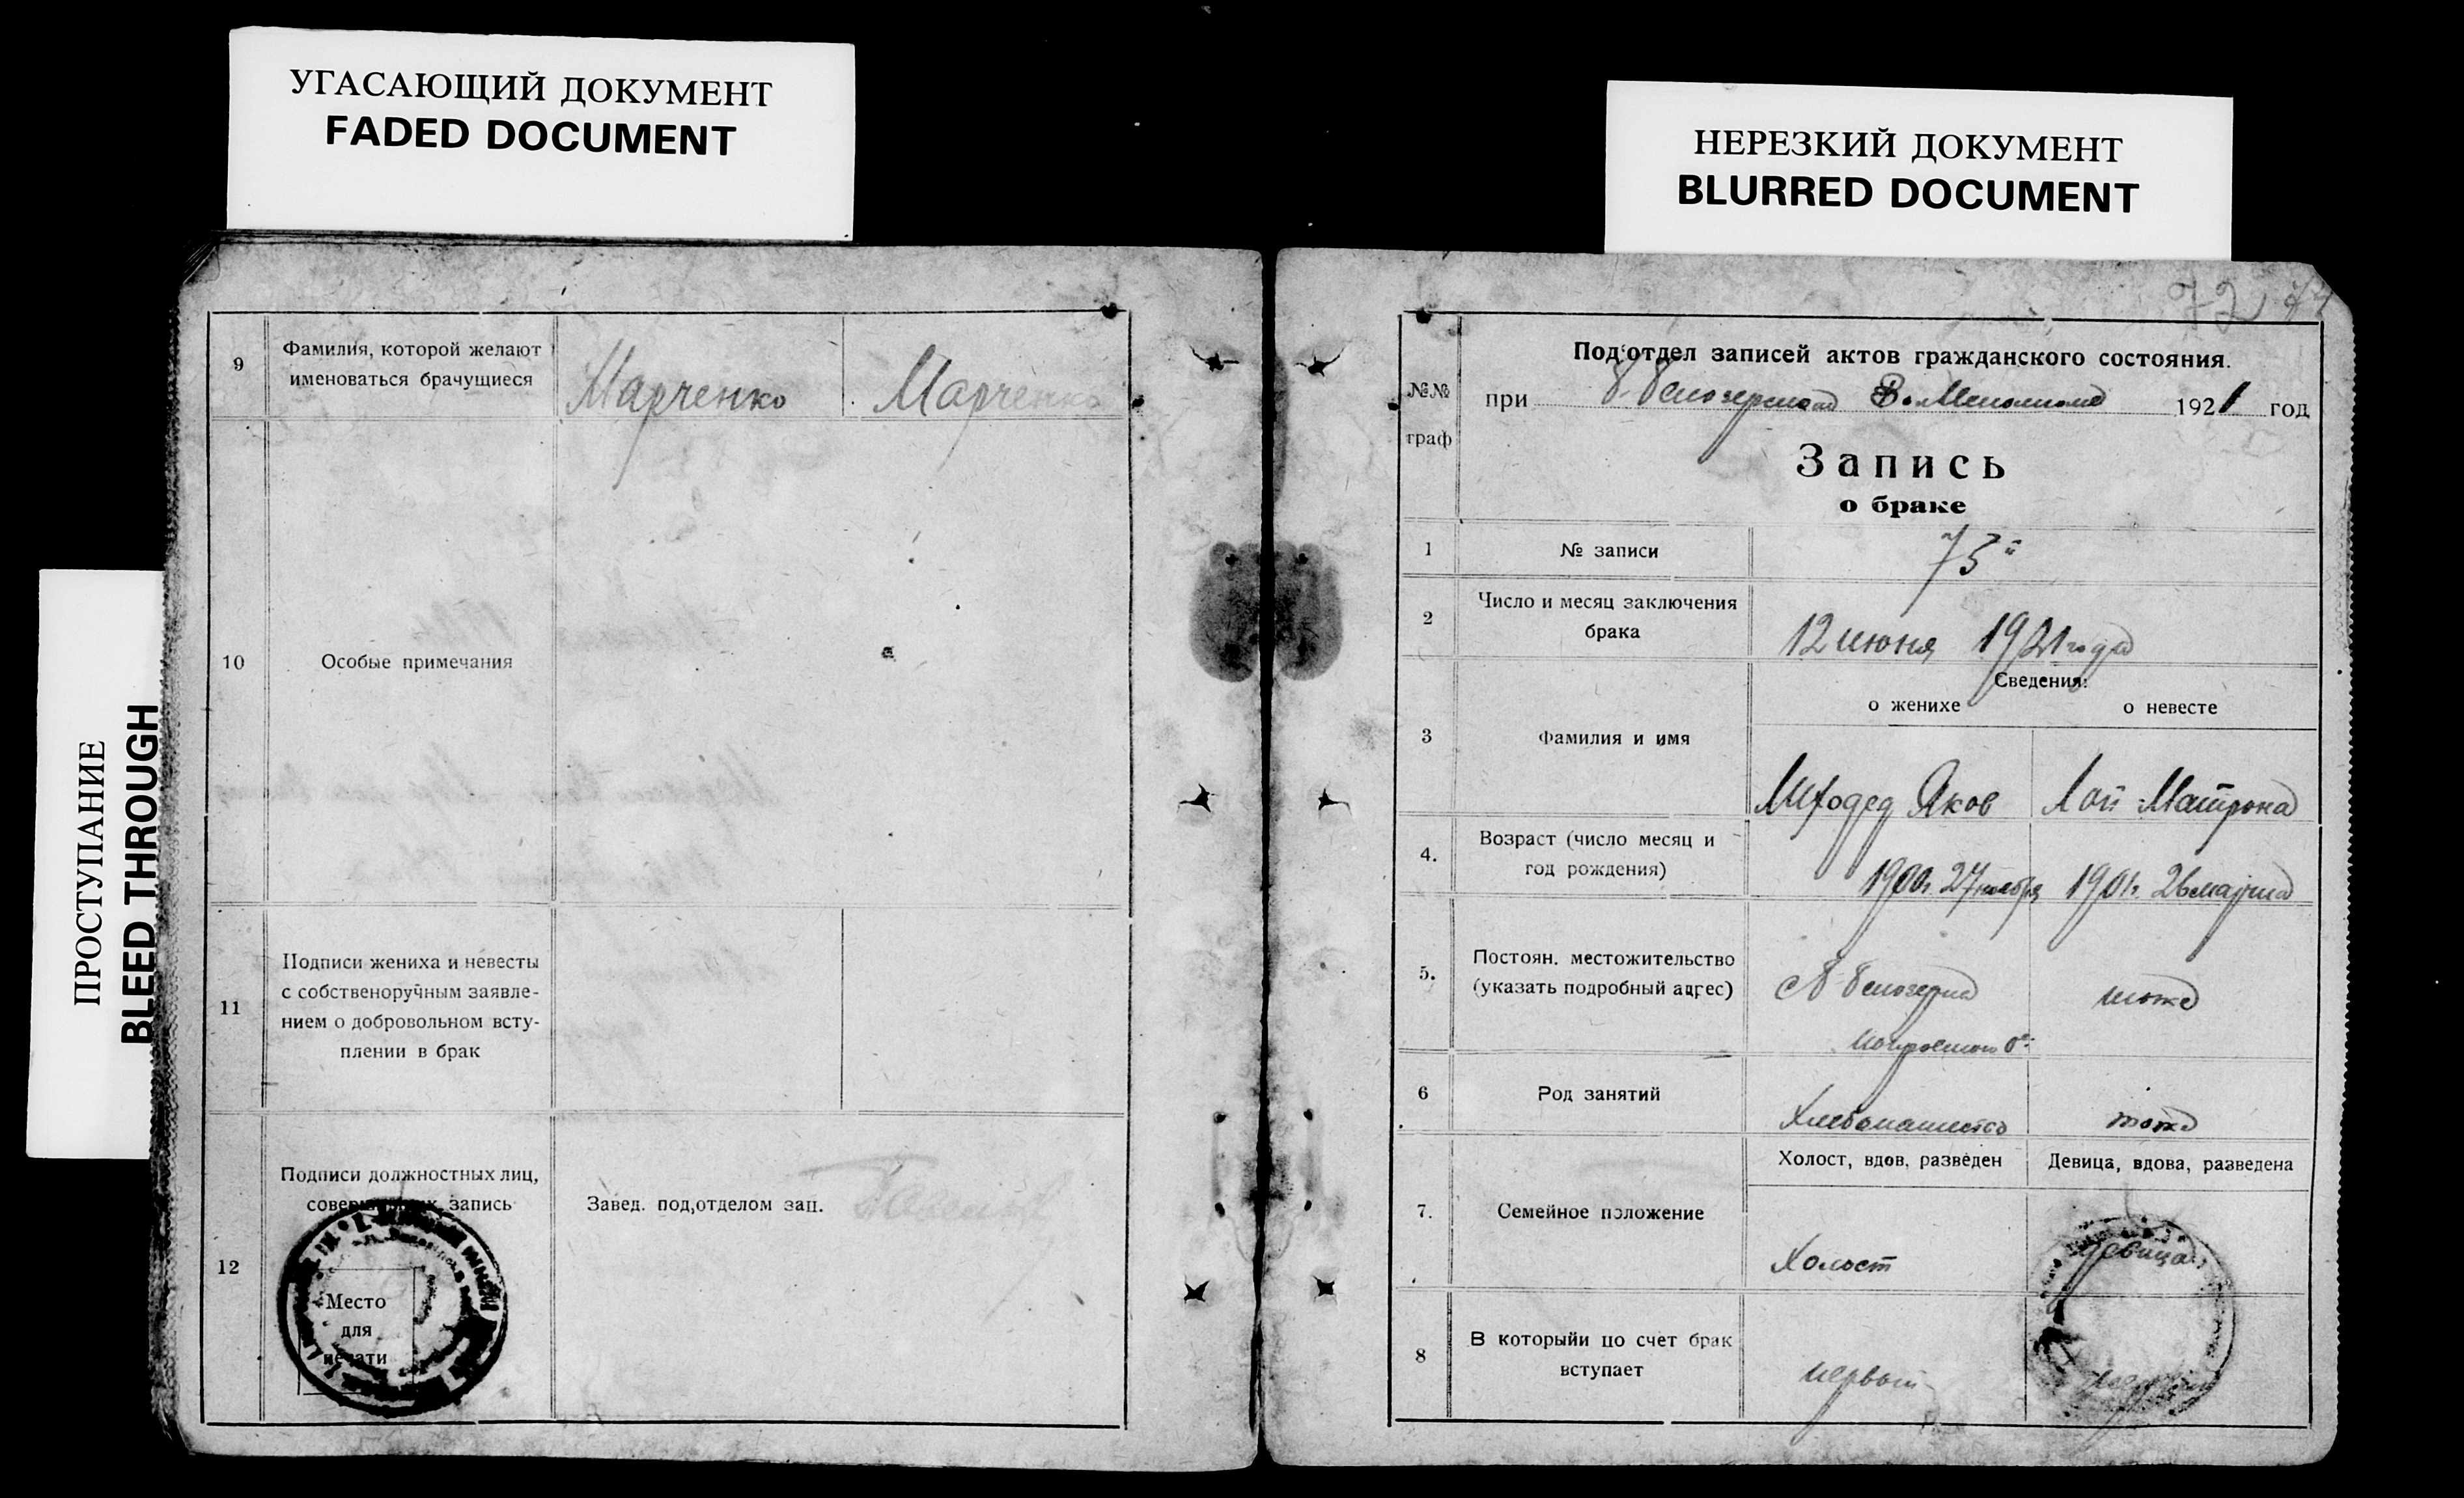 УГАСАЮЩИЙ ДОКУМЕНТ
FADED DOCUMENT
НЕРЕЗКИЙ ДОКУМЕНТ
BLURRED DOCUMENT
ПРОСТУПАНИЕ
BLEED THROUGH
9
Фамилия, которой желают
именоваться брачущиеся
Марченко
Марченко
10
Особые примечания
11
Подписи жениха и невесты
с собственоручным заявле-
нием о добровольном всту-
плении в брак
12
Подписи должностных лиц,
запись
Завед. под,отделом зап.
Место
для
печати
72
№№
граф
Под'отдел записей актов гражданского состояния.
при 1921 год
Запись
о браке
1
№ записи
75й
2
Число и месяц заключения
брака
12 июня 1921 года
Сведения:
о женихе
о невесте
3
Фамилия и имя
Яков
Лой Матрона
4.
Возраст (число месяц и
год рождения)
1900г. 27 ноября
1901г. 26 марта
5.
Постоян. местожительство
(указать подробный адрес)
тоже
6
Род занятий
Хлебопашество
тоже
7.
Семейное положение
Холост, вдов, разведен
Девица, вдова, разведена
Холост
девица
8
В которыйи по счет брак
вступает
первый